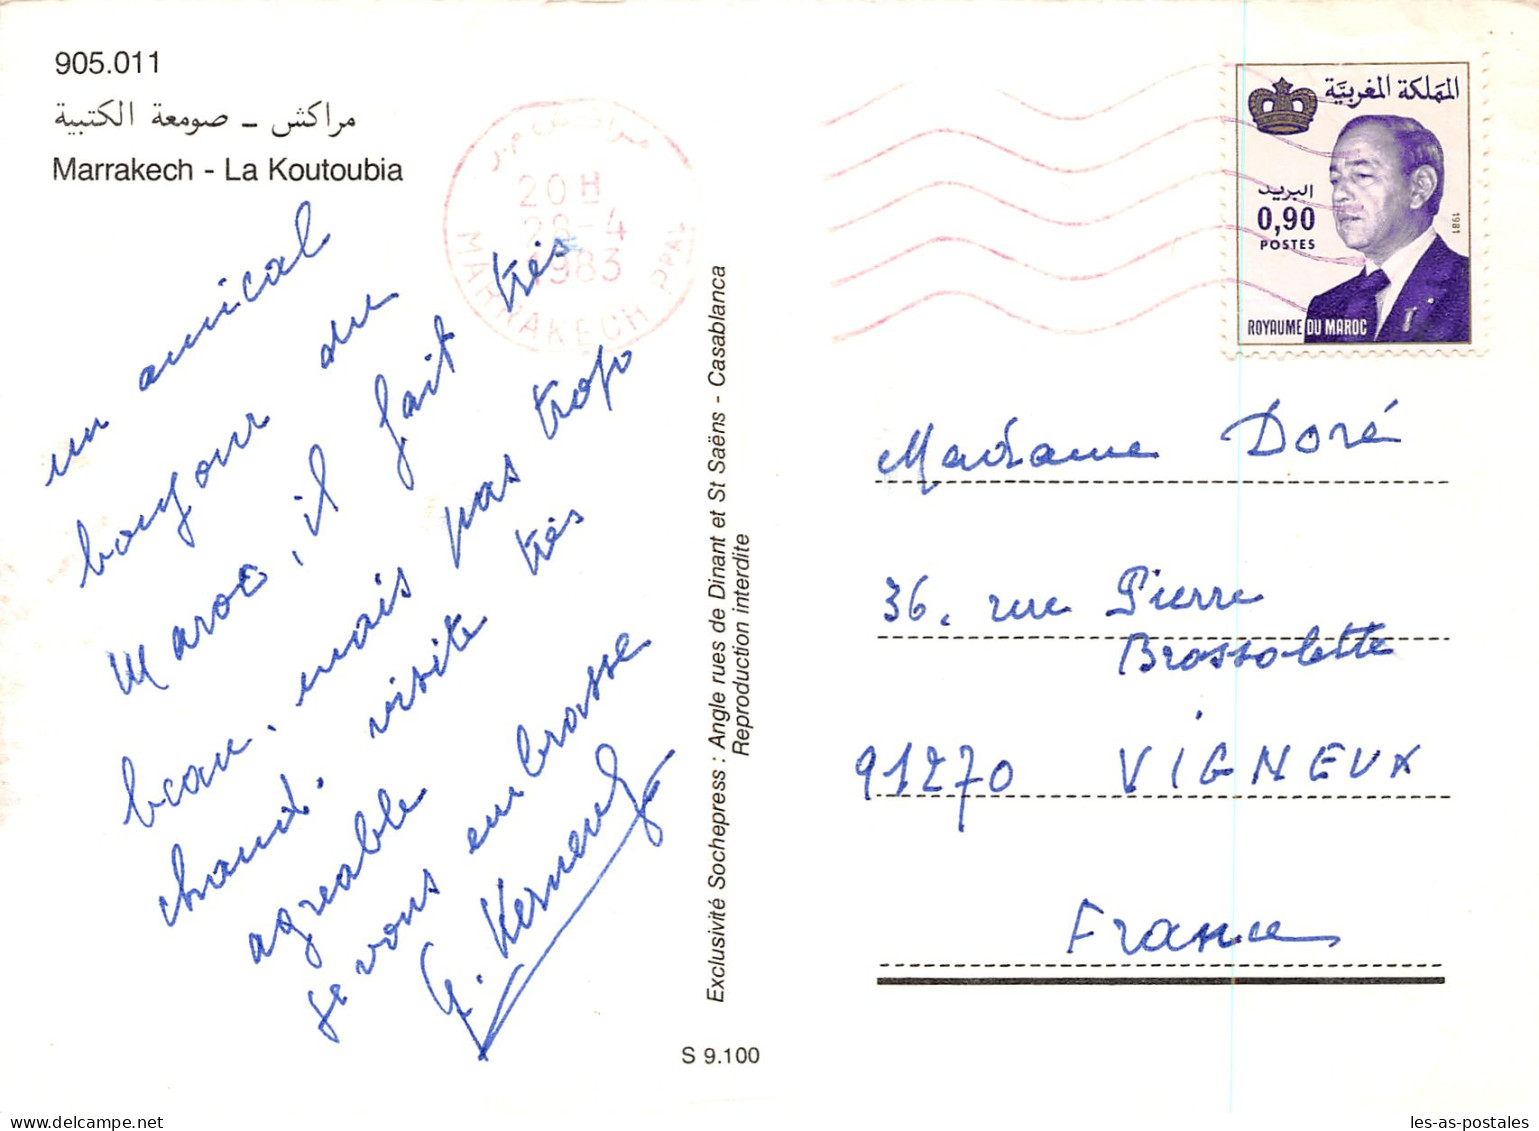 905.011
مراكش – صومعة الكتبية
Marrakech - La Koutoubia
un amical
bonjour du
Maroc, il fait très
beau, mais pas trop
chaud. visite très
agreable
je vous embrasse
G.
Exclusivité Sochepress : Angle rues de Dinant et St Saëns - Casablanca
Reproduction interdite
S 9.100
مراكش م.ر
20 H
28-4
1983
MARRAKECH PPAL
المملكة المغربية
البريد
0,90
POSTES
1981
ROYAUME DU MAROC
Madame Doré
36. rue Pierre
Brossolette
91270 VIGNEUX
France
les-as-postales